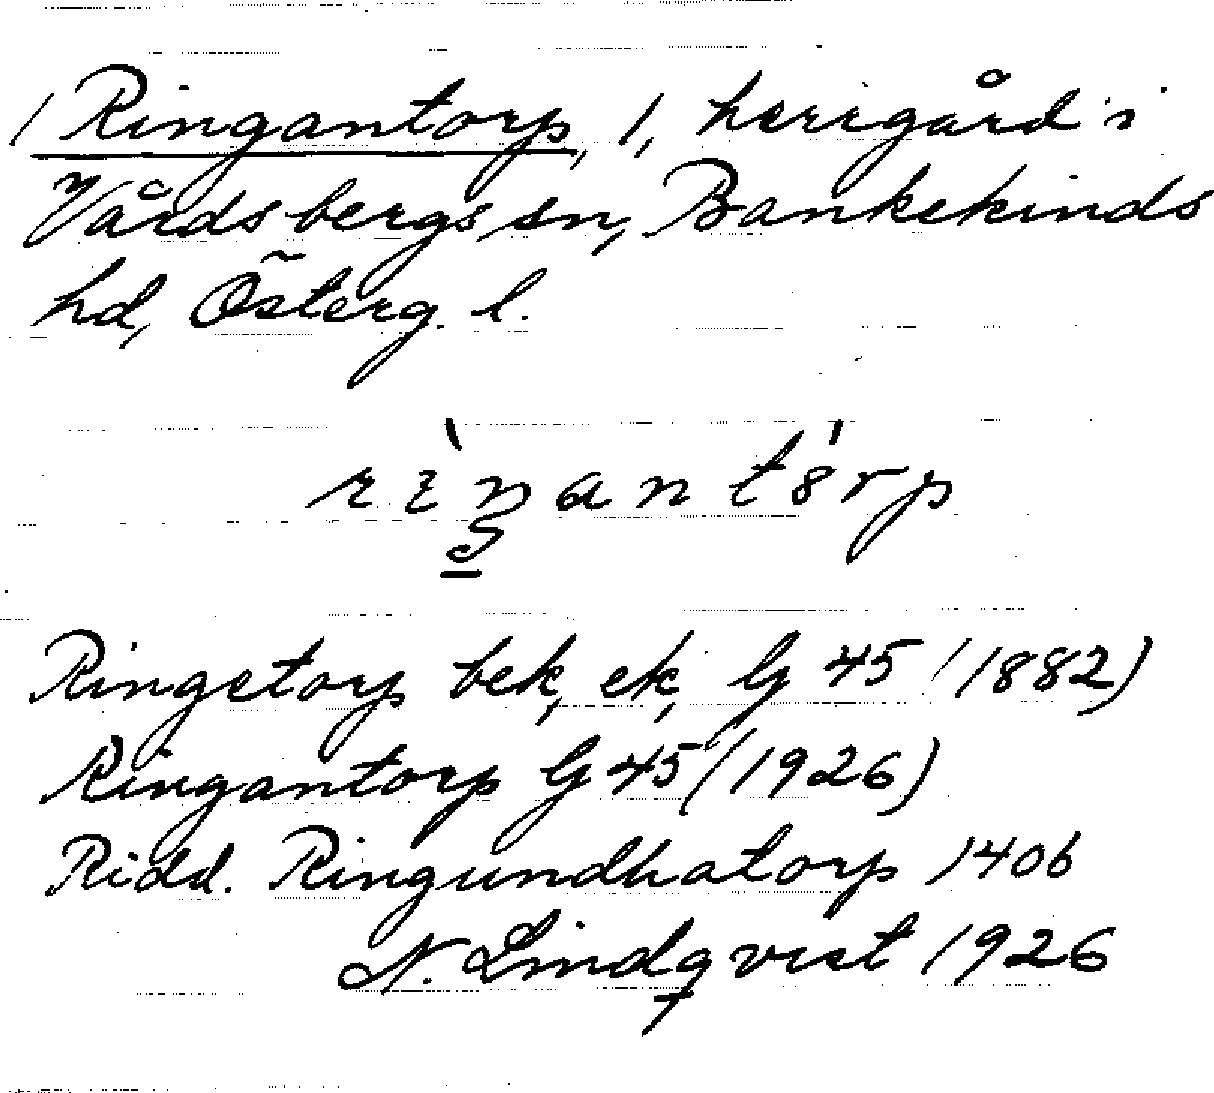 / Ringantorp, 1, herrgård i
Vårdsbergs sn, Bankekinds
hd, Österg. l.
rìŋantórp
Ringetorp bek, ek, G 45 (1882)
Ringantorp G 45 (1926)
Ridd. Ringundhatorp 1406
N. Lindqvist 1926